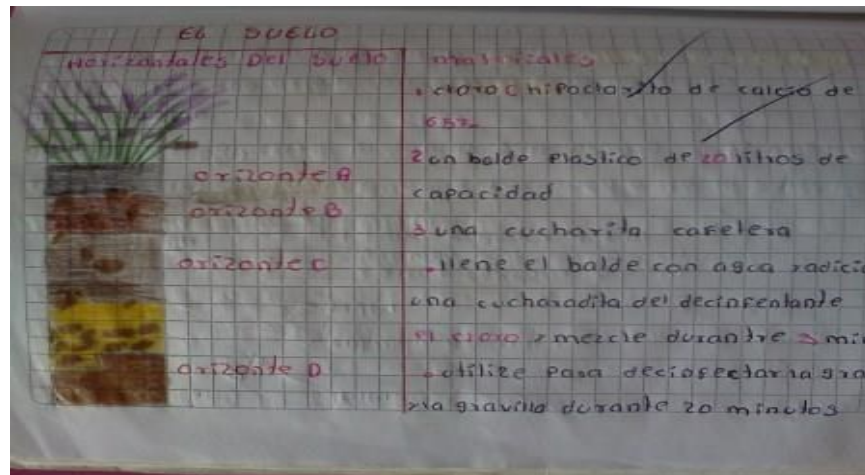 EL SUELO
Horizontales Del Suelo
orizonte A
orizonte B
orizonte C
orizonte D
materiales
cloro hipoclorito de calcio de
65%
2 un balde plastico de 20 litros de
capacidad
3 una cucharita cafetera
llene el balde con agua
una cucharadita del
el cloro mezcle durantre 3 min
utilize para
gravilla durante 20 minutos